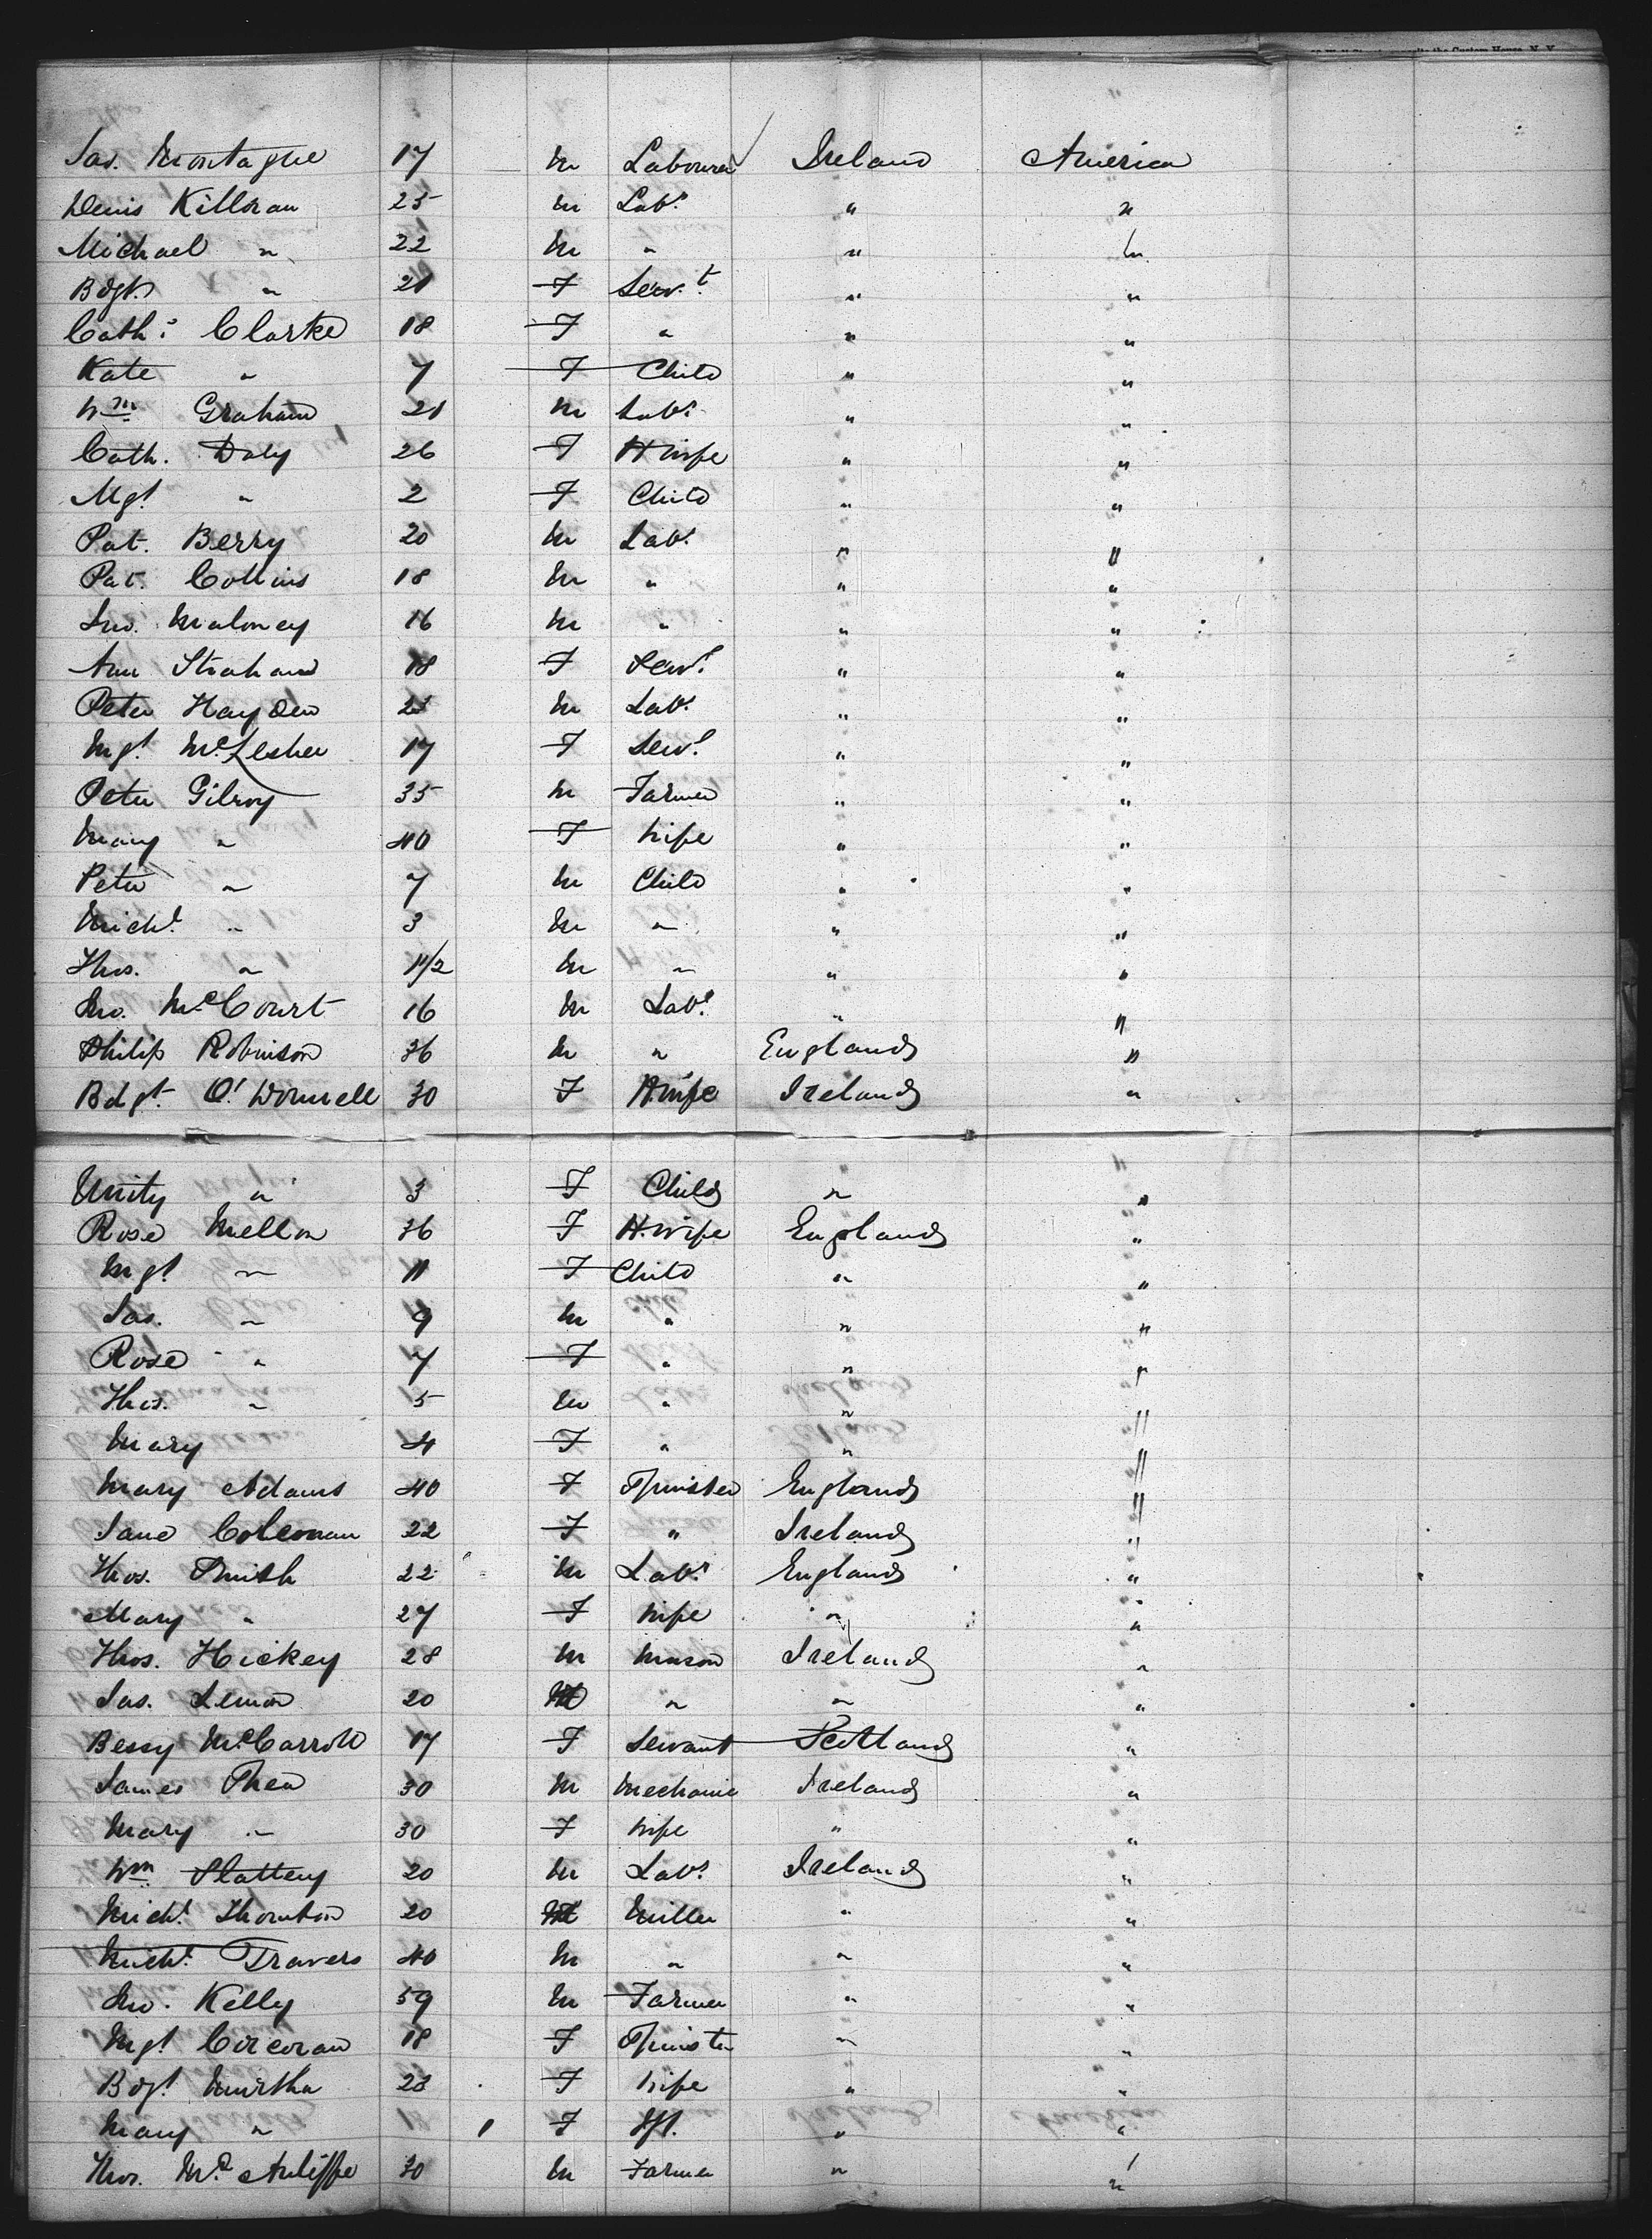 opposite the Custom House, N. Y.
Jas. Montague 17 M Labourer Ireland America
Denis Killoran 25 M Labr " "
Michael " 22 M " " "
Bdgt. " 21 F Servt. " "
Cath. Clarke 18 F " " "
Kate " 7 F Child " "
Wm Graham 21 M Labr " "
Cath. Daly 26 F H wife " "
Mgt " 2 F Child " "
Pat. Berry 20 M Labr " "
Pat. Collins 18 M " " "
Jno. Maloney 16 M " " "
Ann Strahan 18 F Servt " "
Peter Hayden 25 M Labr " "
Mgt. McLesher 17 F Servt " "
Peter Gilroy 35 M Farmer " "
Mary " 40 F Wife " "
Peter " 7 M Child " "
Michl " 3 M " " "
Thos. " 1 1/2 M " " "
Jno. McCourt 16 M Labr " "
Philip Robinson 36 M " England "
Bdgt. O'Donnell 30 F H.wife Ireland "
Unity " 3 F Child " "
Rose Mellon 36 F H.wife England "
Mgt " 11 F Child " "
Jas. " 9 M " " "
Rose " 7 F " " "
Thos. " 5 M " " "
Mary 4 F " " "
Mary Adams 40 F Spinster England "
Jane Coleman 22 F " Ireland "
Thos. Smith 22 M Labr England "
Mary " 27 F Wife " "
Thos. Hickey 28 M Mason Ireland "
Jas. Lemon 20 M " " "
Bessy McCarroll 17 F Servant Scotland "
James Shea 30 M Mechanic Ireland "
Mary " 30 F Wife " "
Wm Slattery 20 M Labr Ireland "
Michl Thornton 20 M Miller " "
Michl Travers 40 M " " "
Jno. Kelly 59 M Farmer " "
Mgt Corcoran 18 F Spinster " "
Bdgt Murtha 23 F Wife " "
Mary " 1 F Inft. " "
Thos. McAuliffe 30 M Farmer " "